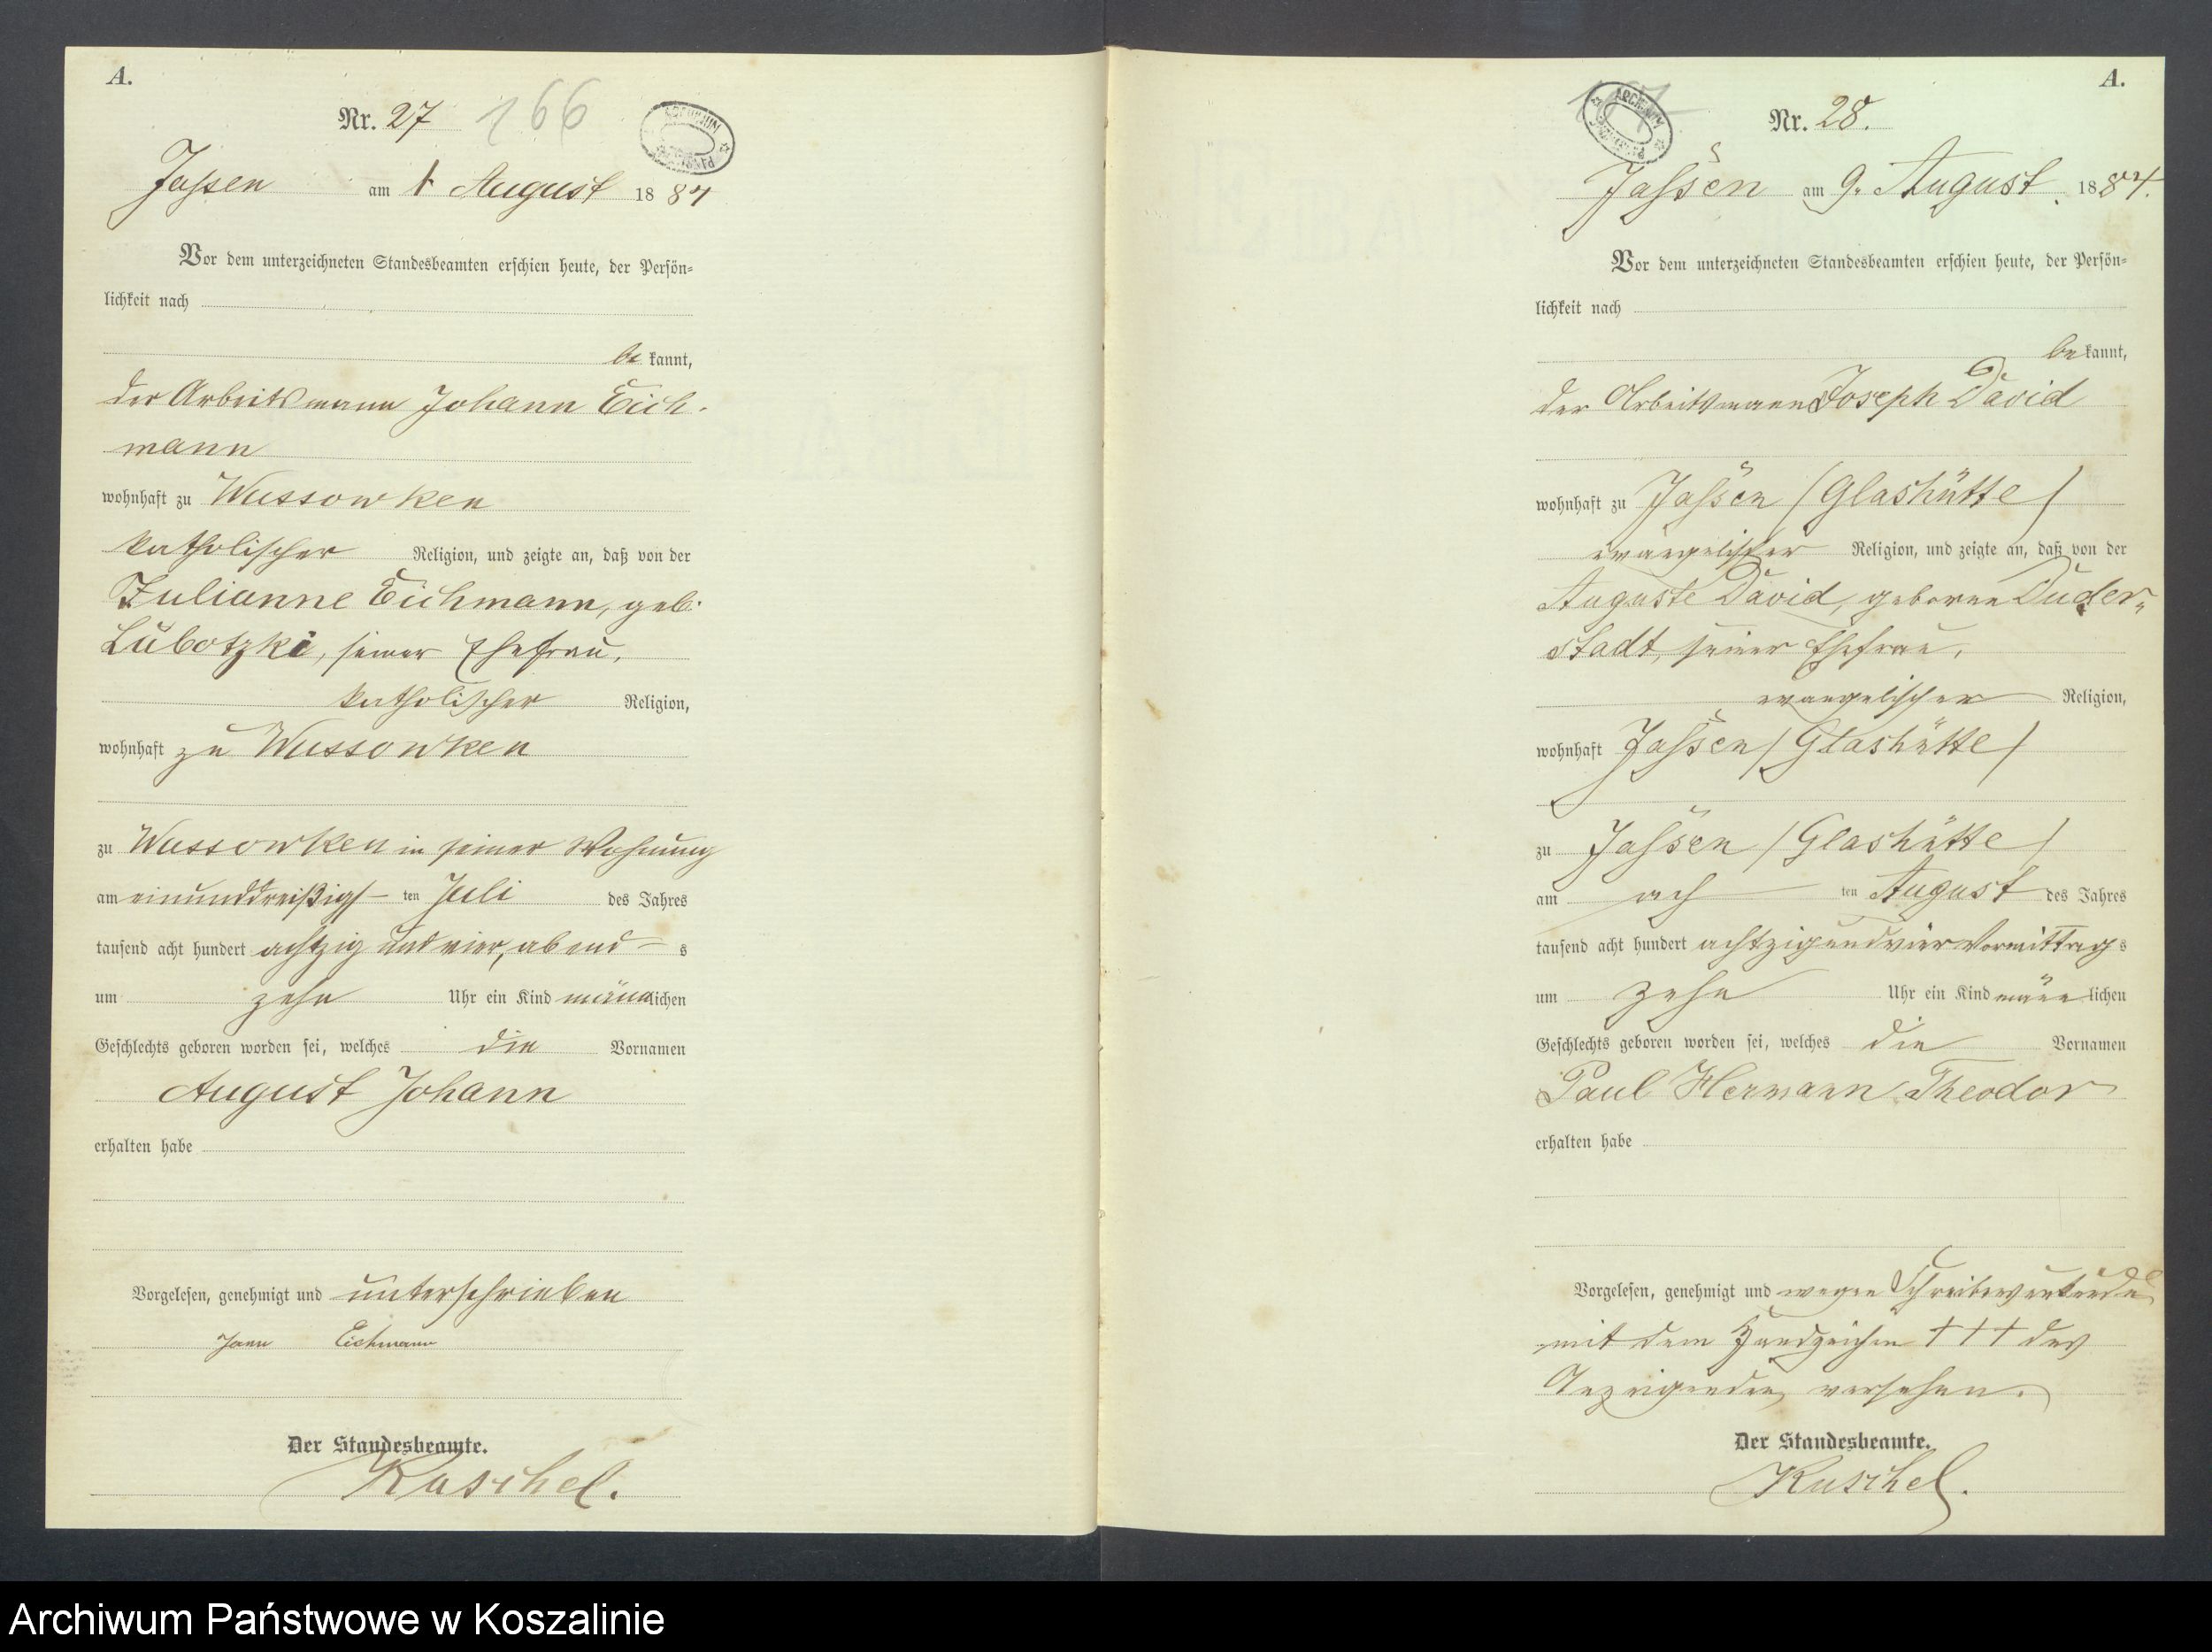 A.
Nr. 27 166
ARCHIWUM
Jassen am 1 August 1884
Vor dem unterzeichneten Standesbeamten erschien heute, der Persön=
lichkeit nach
be kannt,
der Arbeitsmann Johann Eich-
mann
wohnhaft zu Wussowken
katholischer Religion, und zeigte an, daß von der
Julianne Eichmann, geb.
Lübotzki, seiner Ehefrau,
katholischer Religion,
wohnhaft zu Wussowken
zu Wussowken in seiner Wohnung
am einunddreißigs- ten Juli des Jahres
tausend acht hundert achtzig und vier, abend- s
um zehn Uhr ein Kind männlichen
Geschlechts geboren worden sei, welches die Vornamen
August Johann
erhalten habe
Vorgelesen, genehmigt und unterschrieben
Johann Eichmann
Der Standesbeamte.
Kuschel.
A.
Nr. 28.
ARCHIWUM
Jassen am 9. August 1884.
Vor dem unterzeichneten Standesbeamten erschien heute, der Persön=
lichkeit nach
be kannt,
der Arbeitsmann Joseph David
wohnhaft zu Jassen (Glashütte)
evangelischer Religion, und zeigte an, daß von der
Auguste David, geborne Duder=
stadt, seiner Ehefrau,
evangelischer Religion,
wohnhaft Jassen (Glashütte)
zu Jassen (Glashütte)
am ach ten August des Jahres
tausend acht hundert achtzig und vier Vormittag s
um zehn Uhr ein Kind männlichen
Geschlechts geboren worden sei, welches die Vornamen
Paul Hermann Theodor
erhalten habe
Vorgelesen, genehmigt und wegen Schreibensunkunde
mit dem Handzeichen ††† des
Anzeigenden versehen.
Der Standesbeamte.
Kuschel.
Archiwum Państwowe w Koszalinie